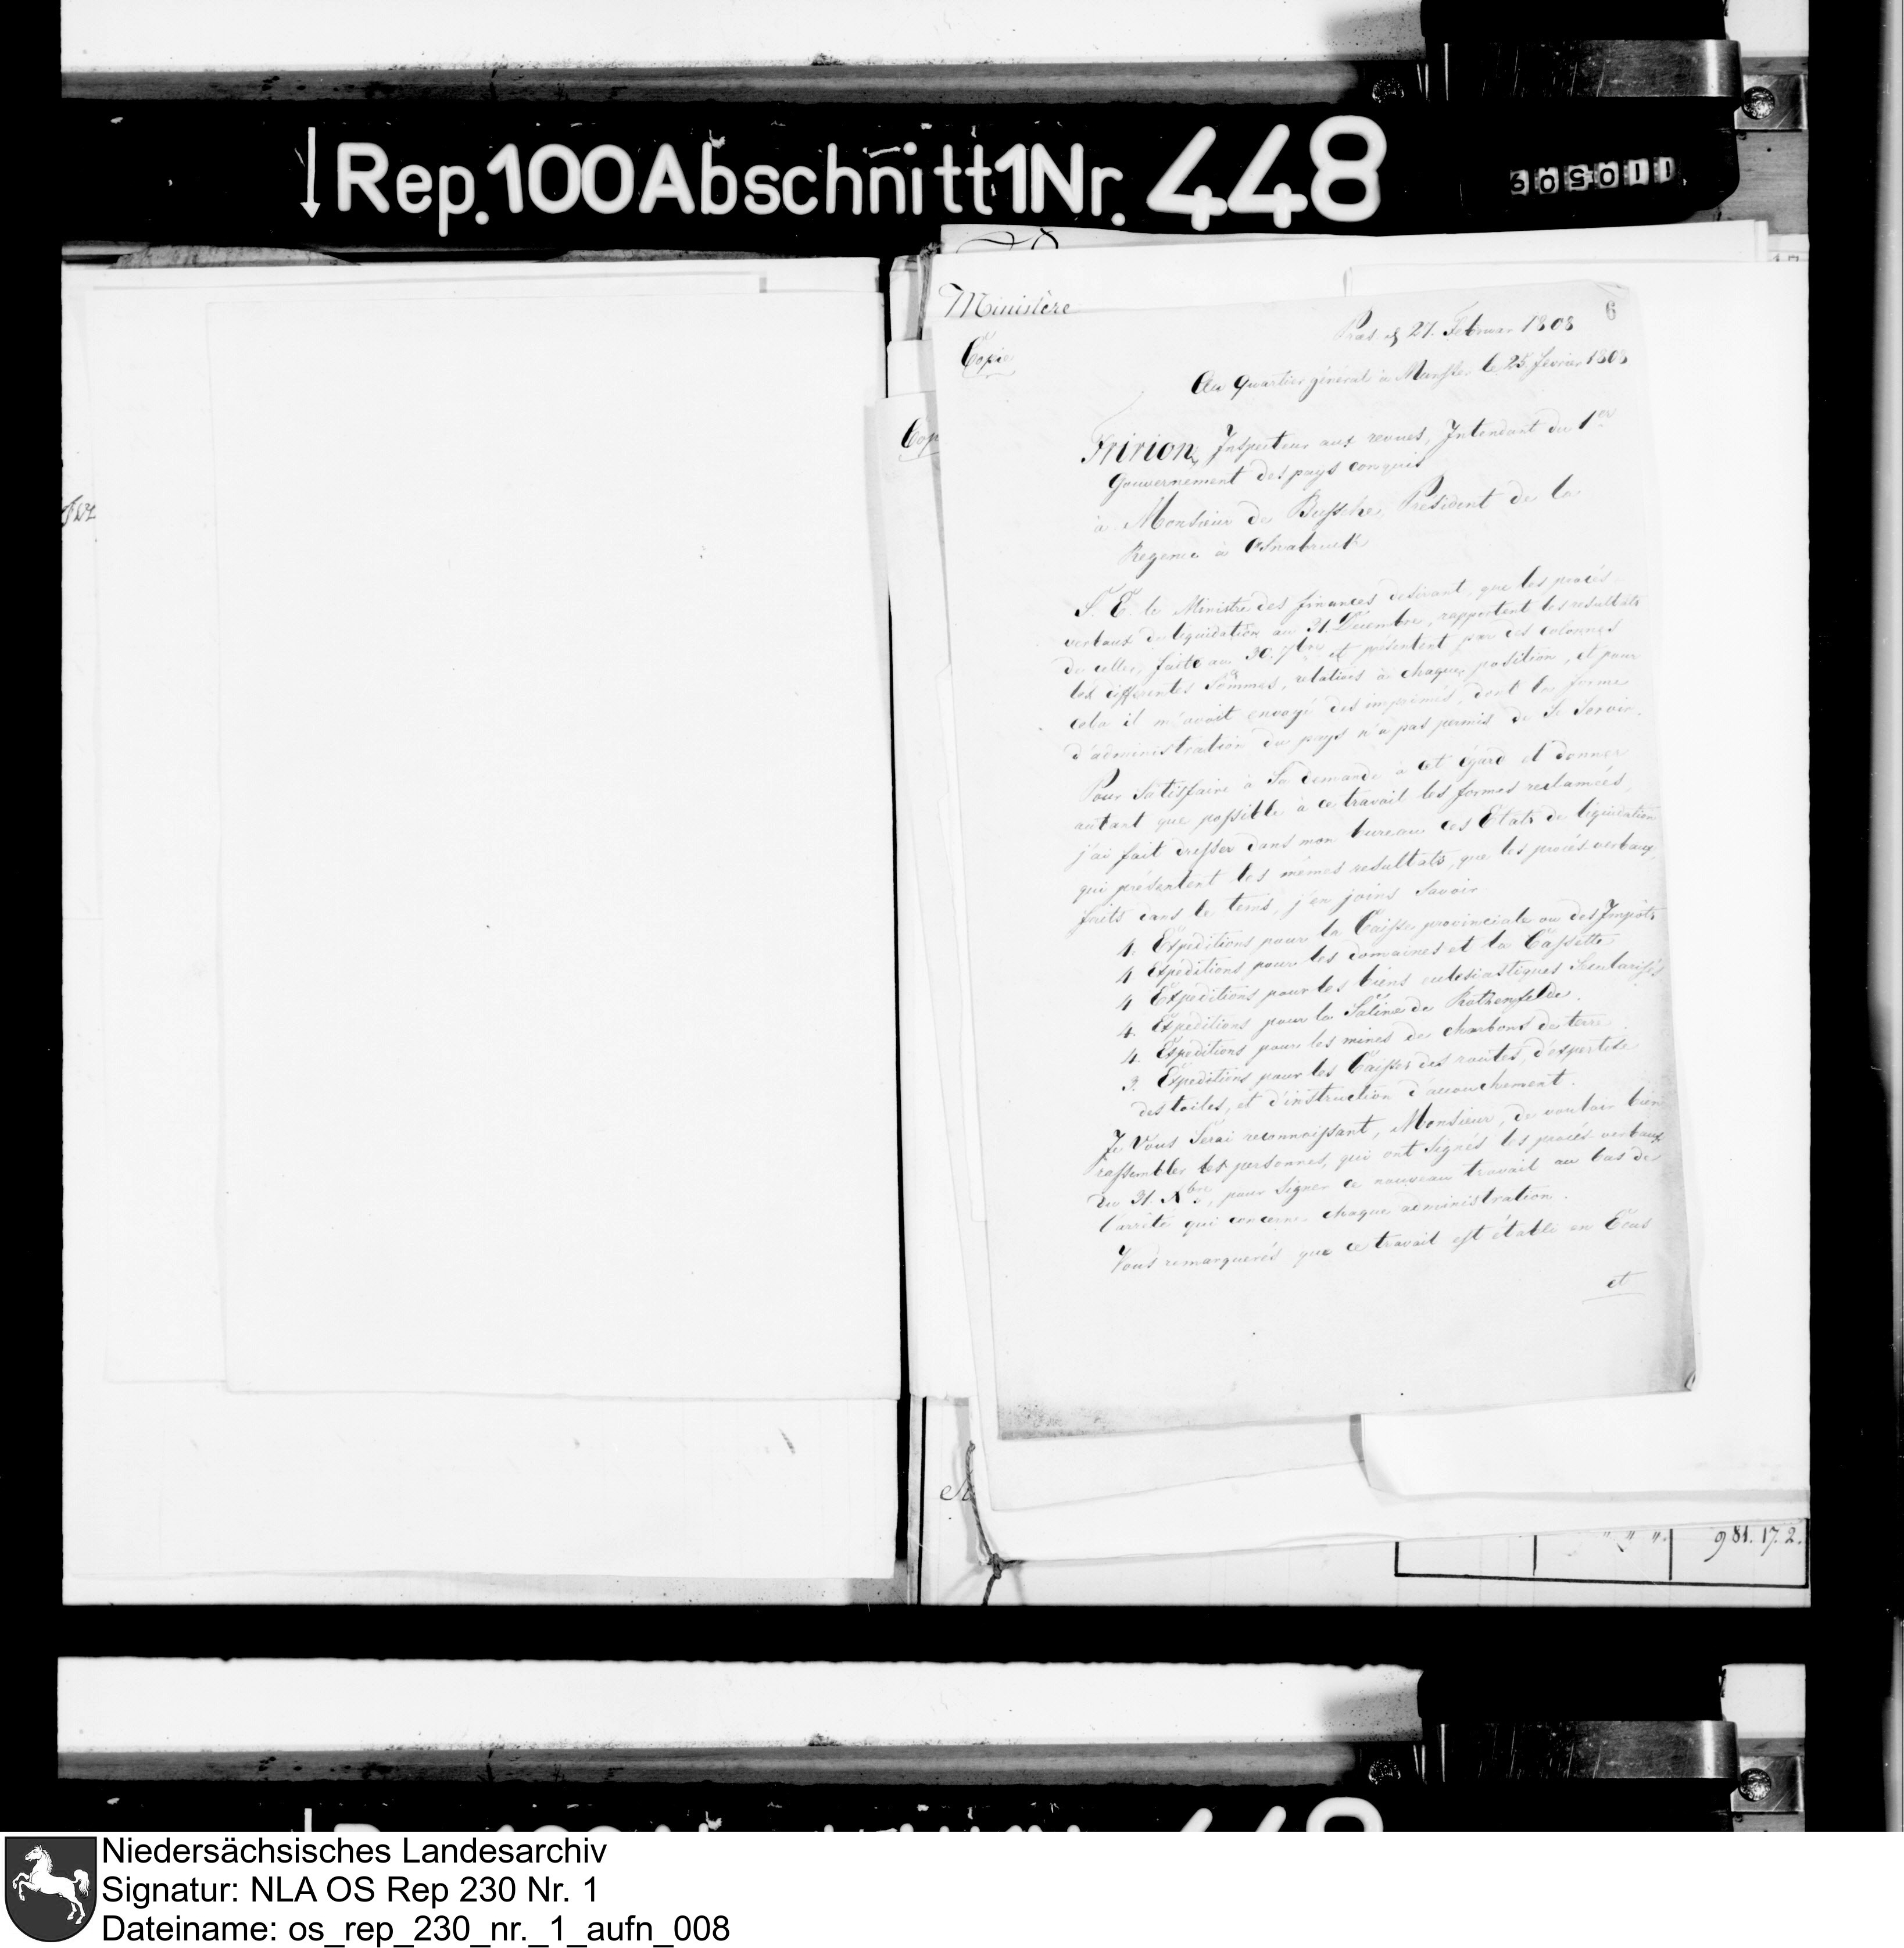 Rep.100Abschnitt1Nr. 448
110509
Ministère
6
Præs. d 27. Februar 1808
Copie
Au Quartier général à Munster le 25 fevrier 1808
Cop
Fririon, Inspecteur aux revues, Intendant du 1er
Gouvernement des pays conquis
à Monsieur de Bussche, Président de la
Regence à Osnabruck
S. E. le Ministre des finances desirant, que les procès
verbaux de liquidation au 31. Decembre, rapportent les resultats
de celle, faite au 30. 7bre et présentent par des colonnes
les differentes sommes, relatives à chaque position, et pour
cela il m'avoit envoyé des imprimés, dont la forme
d'administration du pays n'a pas permis de se servir.
Pour satisfaire à sa demande à cet égard et donner
autant que possible à ce travail les formes reclamées,
j'ai fait dresser dans mon bureau des Etats de liquidation
qui présentent les mêmes resultats, que les procès verbaux,
faits dans le tems, j'en joins savoir
4. Expeditions pour la Caisse provinciale ou des Impôts
4 Expéditions pour les domaines et la Cassette
4 Expeditions pour les biens eclesiastiques secularisés
4. Expeditions pour la Saline de Rothenfelde.
4. Expeditions pour les mines de charbons de terre.
3. Expeditions pour les Caisses des routes, d'expertise
des toiles, et d'instruction d'accouchement.
Je Vous serai reconnoissant, Monsieur, de vouloir bien
rassembler les personnes, qui ont signés les procès verbaux
du 31. Xbre, pour signer ce nouveau travail au bas de
l'arrêté qui concerne chaque administration.
Vous remarquerés que ce travail est établi en Ecus
et
981. 17. 2.
Niedersächsisches Landesarchiv
Signatur: NLA OS Rep 230 Nr. 1
Dateiname: os_rep_230_nr._1_aufn_008